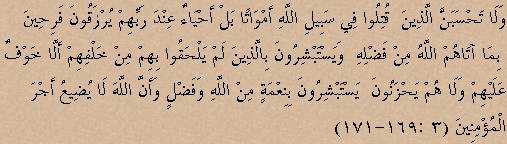 وَلَا تَحْسَبَنَّ الَّذِينَ قُتِلُوا فِي سَبِيلِ اللَّهِ أَمْوَاتًا بَلْ أَحْيَاءٌ عِنْدَ رَبِّهِمْ يُرْزَقُونَ فَرِحِينَ
بِمَا آتَاهُمُ اللَّهُ مِنْ فَضْلِهِ وَيَسْتَبْشِرُونَ بِالَّذِينَ لَمْ يَلْحَقُوا بِهِمْ مِنْ خَلْفِهِمْ أَلَّا خَوْفٌ
عَلَيْهِمْ وَلَا هُمْ يَحْزَنُونَ يَسْتَبْشِرُونَ بِنِعْمَةٍ مِنَ اللَّهِ وَفَضْلٍ وَأَنَّ اللَّهَ لَا يُضِيعُ أَجْرَ
الْمُؤْمِنِينَ (٣ :١٦٩-١٧١)